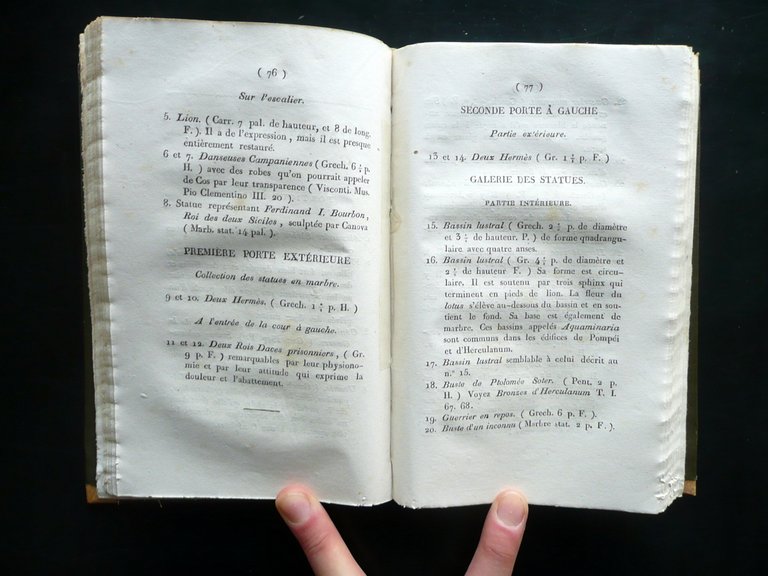 ( 76 )
Sur l'escalier.
5. Lion. ( Carr. 7 pal. de hauteur, et 8 de long.
F. ). Il a de l'expression, mais il est presque
entièrement restauré.
6 et 7. Danseuses Campaniennes ( Grech. 6 ½ p.
H. ) avec des robes qu'on pourrait appeler
de Cos par leur transparence ( Visconti. Mus.
Pio Clementino III. 20 ).
8. Statue représentant Ferdinand I. Bourbon,
Roi des deux Siciles, sculptée par Canova
( Marb. stat. 14 pal. ).
PREMIÈRE PORTE EXTÉRIEURE
Collection des statues en marbre.
9 et 10. Deux Hermès. ( Grech. 1 ½ p. H. )
A l'entrée de la cour à gauche.
11 et 12. Deux Rois Daces prisonniers, ( Gr.
9 p. F. ) remarquables par leur physiono-
mie et par leur attitude qui exprime la
douleur et l'abattement.
( 77 )
SECONDE PORTE À GAUCHE
Partie extérieure.
13 et 14. Deux Hermès ( Gr. 1 ½ p. F. )
GALERIE DES STATUES.
PARTIE INTÉRIEURE.
15. Bassin lustral ( Grech. 2 ½ p. de diamètre
et 3 ½ de hauteur. P. ) de forme quadrangu-
laire avec quatre anses.
16. Bassin lustral ( Gr. 4 ½ p. de diamètre et
2 ½ de hauteur F. ) Sa forme est circu-
laire. Il est soutenu par trois sphinx qui
terminent en pieds de lion. La fleur du
lotus s'élève au-dessous du bassin et en sou-
tient le fond. Sa base est également de
marbre. Ces bassins appelés Aquaminaria
sont communs dans les édifices de Pompéi
et d'Herculanum.
17. Bassin lustral semblable à celui décrit au
n.° 15.
18. Buste de Ptolomée Soter. ( Pent. 2 p.
H. ) Voyez Bronzes d'Herculanum T. I.
67. 68.
19. Guerrier en repos. ( Grech. 6 p. F. ).
20. Buste d'un inconnu ( Marbre stat. 2 p. F. ).